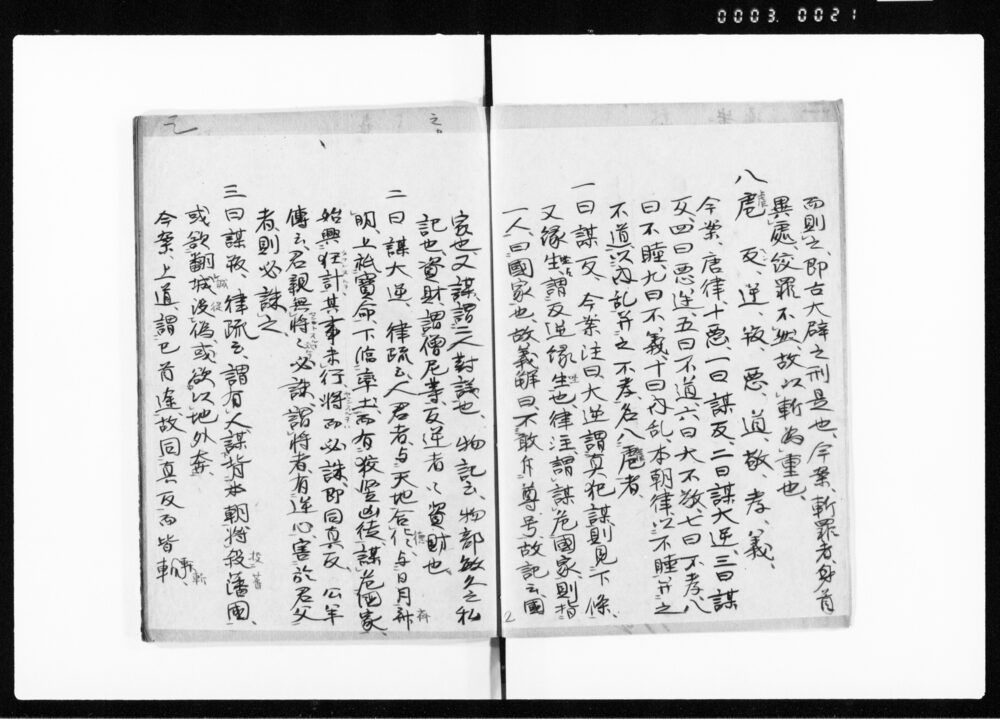 0003. 0021
而則之、即古大辟之刑是也、今案、斬罪者、身首
異處、絞罪不然、故以斬為重也、
八虐 反、逆、叛、惡、道、敬、孝、義、
今案、唐律十惡、一曰謀反、二曰謀大逆、三曰謀
叛、四曰惡逆、五曰不道、六曰大不敬、七曰不孝、八
曰不睦、九曰不義、十曰内乱、本朝律以不睦并之
不道、以内乱并之不孝、名八虐者、
一曰謀反、今案、注曰大逆謂真犯、謀則見下條、
又縁坐、謂反逆縁坐也、律注謂謀危國家、則指
一人曰國家也、故義解曰不敢斥尊号、故記云、國
2
家也、又謀、謂二人對議也、物記云、物部敏久之私
記也、資財謂僧尼等反逆者之資財也、
二曰謀大逆、律疏云、人君者、与天地合化、与日月
明、上祗寶命、下臨率土、而有狡竪凶徒、謀危國家、
始興狂計、其事未行、將而必誅、即同真反、公羊
傳云、君親無將、々必誅、謂將者有逆心、害於君父
者、則必誅之
三曰謀叛、律疏云、謂有人謀背本朝、將投蕃國、
或欲翻城没偽、或欲以地外奔、
今案、上道、謂已首途、故同真反而皆斬、